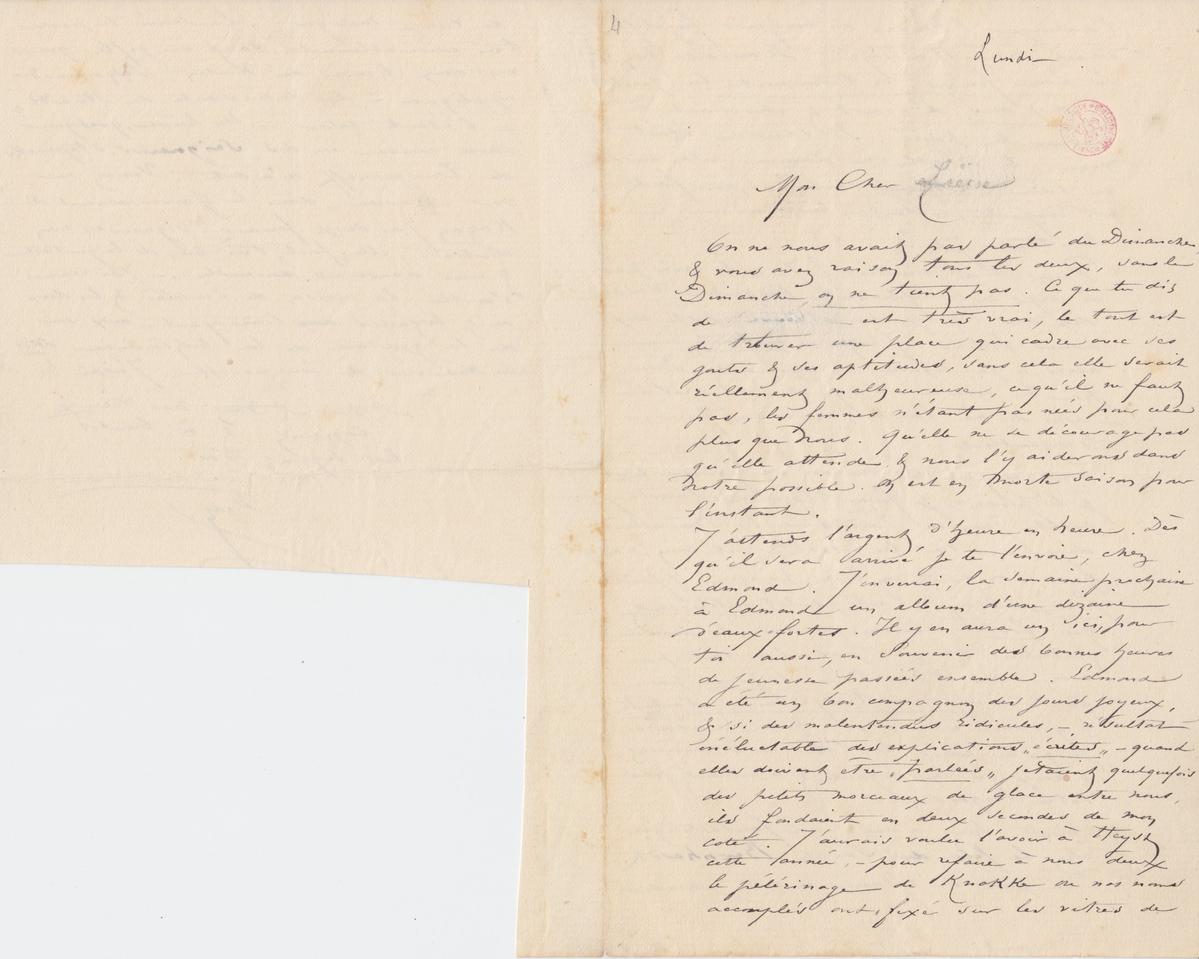 4
Lundi
Mon Cher
On ne nous avait pas parlé du Dimanche,
& vous avez raison tous les deux, sans le
Dimanche, on ne tient pas. Ce que tu dis
de est très vrai, le tout est
de trouver une place qui cadre avec ses
gouts & ses aptitudes, sans cela elle serait
réellement malheureuse, ce qu'il ne faut
pas, les femmes n'étant pas nées pour cela
plus que nous. Qu'elle ne se décourage pas
qu'elle attende & nous l'y aiderons dans
notre possible. On est en morte saison pour
l'instant.
J'attends l'argent d'heure en heure. Dès
qu'il sera arrivé je te l'envoie, chez
Edmond. J'enverrai, la semaine prochaine
à Edmond un album d'une dizaine
d'eaux-fortes. Il y en aura un ici, pour
toi aussi, en souvenir des bonnes heures
de jeunesse passées ensemble. Edmond
a été un bon compagnon des jours joyeux,
& si des malentendus ridicules, – résultat
inéluctable des explications „écrites„ – quand
elles doivent être „parlées„ jetaient quelquefois
des petits morceaux de glace entre nous,
ils fondaient en deux secondes de mon
coté. J'aurais voulu l'avoir à Heyst
cette année, – pour refaire à nous deux
le pélérinage de Knokke ou nos noms
accouplés ont, fixé sur les vitres de